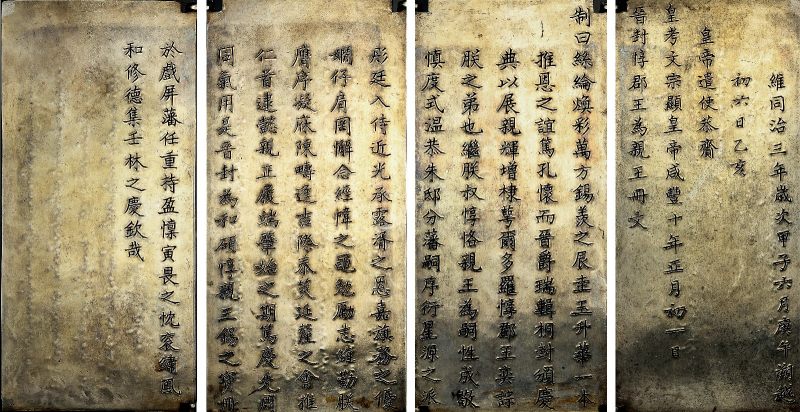 維同治三年歲次甲子六月庚午朔越
初六日乙亥
皇帝遣使恭齎
皇考文宗顯皇帝咸豐十年正月初一日
晉封惇郡王為親王冊文
制曰絲綸煥彩萬方錫羨之辰圭玉升華一本
推恩之誼篤孔懷而晉爵瑞輯桐封頒慶
典以展親輝增棣萼爾多羅惇郡王奕誴
朕之弟也繼朕叔惇恪親王為嗣性成敬
慎度式溫恭朱邸分藩嗣序衍星源之派
彤廷入侍近光承露之恩嘉旗務之優
嫻仔肩罔懈合經幃之黽勉勵志維勤朕
膺序凝庥陳疇進吉際泰筴延釐之會推
仁首逮懿親正端肇始之期篤慶先周
同氣用是晉封為和碩惇親王錫之寶冊
於戲屏藩任重持盈懍寅畏之忱
和修德集壬林之慶欽哉